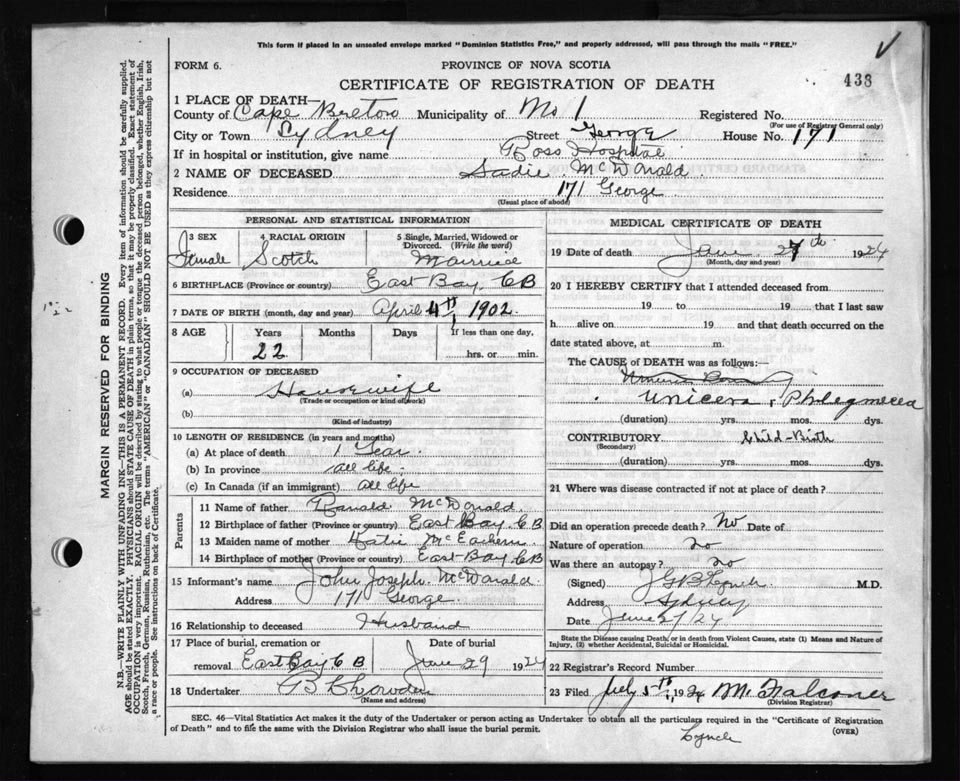 This form if placed in an unsealed envelope marked "Dominion Statistics Free," and properly addressed, will pass through the mails "FREE."
FORM 6.
PROVINCE OF NOVA SCOTIA
CERTIFICATE OF REGISTRATION OF DEATH
438
1 PLACE OF DEATH—
County of Cape Breton Municipality of No 1 Registered No.
(For use of Registrar General only)
City or Town Sydney Street George House No. 171
If in hospital or institution, give name Ross Hospital
2 NAME OF DECEASED Sadie McDonald
Residence 171 George
(Usual place of abode)
PERSONAL AND STATISTICAL INFORMATION
3 SEX 4 RACIAL ORIGIN 5 Single, Married, Widowed or Divorced. (Write the word)
Female Scotch Married
6 BIRTHPLACE (Province or country) East Bay, CB
7 DATE OF BIRTH (month, day and year) April 4th, 1902
8 AGE Years Months Days If less than one day,
22 hrs. or min.
9 OCCUPATION OF DECEASED
(a) Housewife
(Trade or occupation or kind of work)
(b)
(Kind of industry)
10 LENGTH OF RESIDENCE (in years and months)
(a) At place of death 1 Year
(b) In province all life
(c) In Canada (if an immigrant) all life
Parents
11 Name of father Ranald McDonald
12 Birthplace of father (Province or country) East Bay, CB
13 Maiden name of mother Katie McEachern
14 Birthplace of mother (Province or country) East-Bay, CB
15 Informant's name John Joseph McDonald
Address 171 George
16 Relationship to deceased Husband
17 Place of burial, cremation or removal East Bay CB
Date of burial June 29 1924
18 Undertaker
(Name and address)
MEDICAL CERTIFICATE OF DEATH
19 Date of death June 27th 1924
(Month, day and year)
20 I HEREBY CERTIFY that I attended deceased from
19 to 19 that I last saw
h alive on 19 and that death occurred on the
date stated above, at m.
The CAUSE of DEATH was as follows:—
(duration) yrs. mos. dys.
CONTRIBUTORY Child-Birth
(Secondary)
(duration) yrs. mos. dys.
21 Where was disease contracted if not at place of death?
Did an operation precede death? No Date of
Nature of operation no
Was there an autopsy? no
(Signed) Lynch M.D.
Address Sydney
Date June 27/24
State the Disease causing Death, or in death from Violent Causes, state (1) Means and Nature of Injury, (2) whether Accidental, Suicidal or Homicidal.
22 Registrar's Record Number
23 Filed July 5th, 1924 M. Falconer
(Division Registrar)
SEC. 46—Vital Statistics Act makes it the duty of the Undertaker or person acting as Undertaker to obtain all the particulars required in the "Certificate of Registration
of Death" and to file the same with the Division Registrar who shall issue the burial permit.
(OVER)
Lynch
MARGIN RESERVED FOR BINDING
N.B.—WRITE PLAINLY WITH UNFADING INK—THIS IS A PERMANENT RECORD. Every item of information should be carefully supplied.
AGE should be stated EXACTLY. PHYSICIANS should STATE CAUSE OF DEATH in plain terms, so that it may be properly classified. Exact statement of
OCCUPATION is very important. RACIAL ORIGIN will be described by stating to what people or tongue the deceased person belonged, whether English, Irish,
Scotch, French, German, Russian, Ruthenian, etc. The terms "AMERICAN" or "CANADIAN" SHOULD NOT BE USED as they express citizenship but not
a race or people. See instructions on back of Certificate.